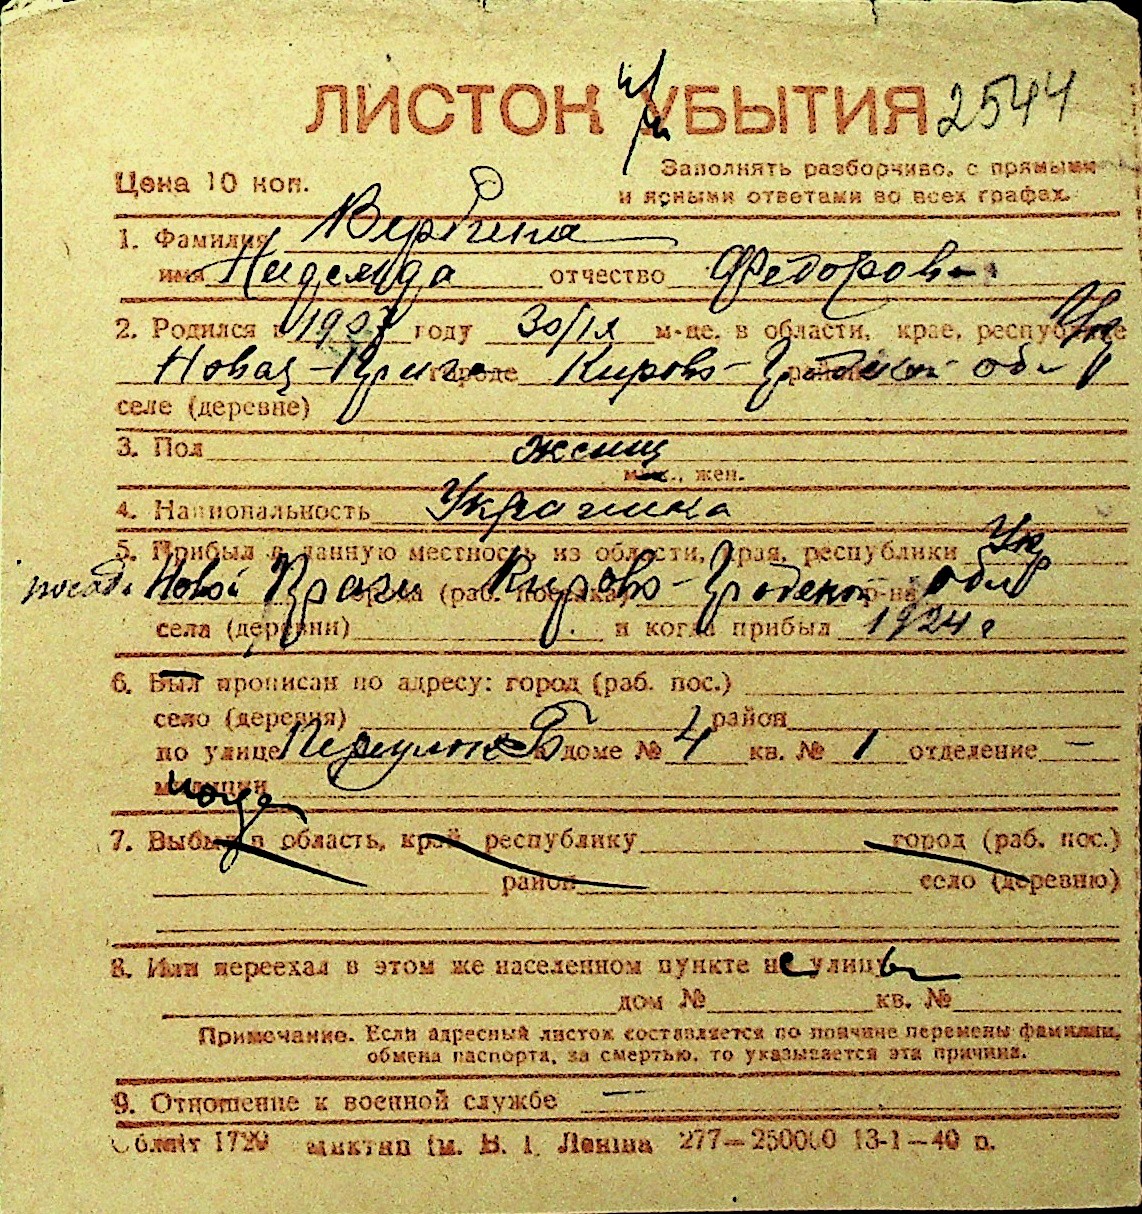 ЛИСТОК УБЫТИЯ 2544
Цена 10 коп.
Заполнять разборчиво, с прямыми
и ясными ответами во всех графах.
1. Фамилия Вербина
имя Надежда отчество Федоров-
2. Родился в 1907 году 30/IX м-це, в области, крае, республике Укр
Новая-Прага городе Кирово-Градской обл
селе (деревне)
3. Пол женщ
муж., жен.
4. Национальность Украинка
5. Прибыл в данную местность из области, края, республики Укр
посад. Новой Праги города (раб. поселка) Кирово-Граденой р-на обл
села (деревни) и когда прибыл 1924 г
6. Был прописан по адресу: город (раб. пос.)
село (деревня) район
по улице Переулок Б в доме № 4 кв. № 1 отделение —
милиции
7. Выбыл в область, край, республику город (раб. пос.)
район село (деревню)
8. Или переехал в этом же населенном пункте не улицы
дом № кв. №
Примечание. Если адресный листок составляется по причине перемены фамилии,
обмена паспорта, за смертью, то указывается эта причина.
9. Отношение к военной службе —
Облліт 1729 ім. В. І. Леніна 277—250000 13-1—40 р.